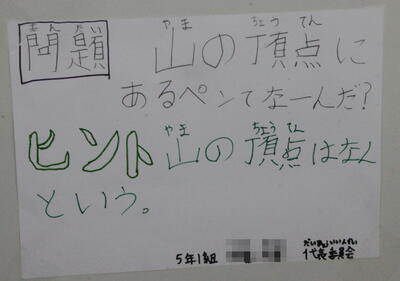 問題 山の頂点に
あるペンてなーんだ?
ヒント 山の頂点はなん
という。
5年1組 代表委員会